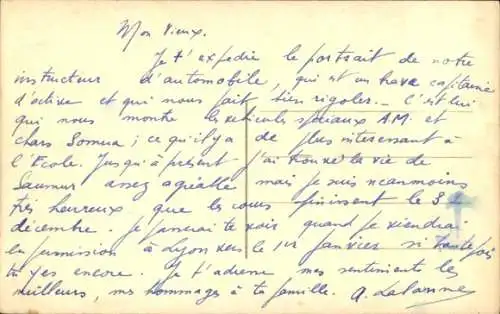 Mon Vieux.
Je t'expedie le portrait de notre
instructeur d'automobile, qui est un brave capitaine
d'active et qui nous fait bien rigoler. _ C'est lui
qui nous montre les vehicules speciaux A.M. et
chars Somua ; ce qu'il y a de plus interessant à
l'Ecole. Jusqu'à présent j'ai trouvé la vie de
Saumur assez agréable mais je suis neanmoins
très heureux que les cours finissent le 31
décembre. Je passerai te voir quand je viendrai
en permission à Lyon vers le 1er janvier si toutefois
tu y es encore. Je t'adresse mes sentiments les
meilleurs, mes hommages à ta famille.